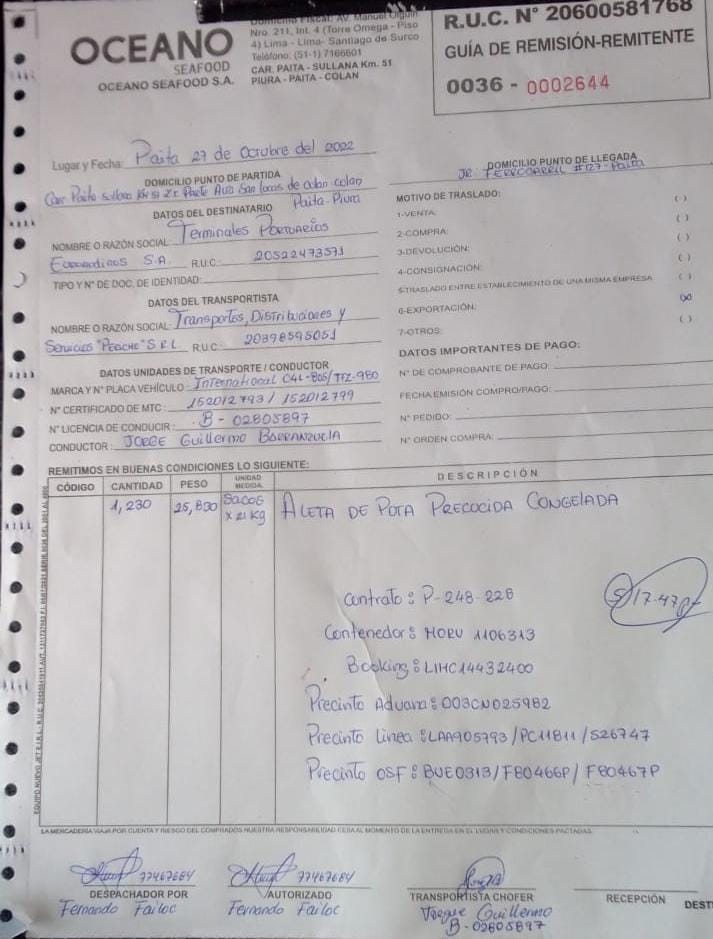 OCEANO
SEAFOOD
OCEANO SEAFOOD S.A.
Domicilio Fiscal: AV. Manuel Olguin
Nro. 211, Int. 4 (Torre Omega - Piso
4) Lima - Lima- Santiago de Surco
Teléfono: (51-1) 7166601
CAR. PAITA - SULLANA Km. 51
PIURA - PAITA - COLAN
R.U.C. N° 20600581768
GUÍA DE REMISIÓN-REMITENTE
0036 - 0002644
Lugar y Fecha: Paita 27 de Octubre del 2022
DOMICILIO PUNTO DE PARTIDA
Carr Paita sullana Km 51 Z.I. Parte Alta San lucas de colan colan
Paita-Piura
DOMICILIO PUNTO DE LLEGADA
JR. FERROCARRIL #127-Paita
DATOS DEL DESTINATARIO
NOMBRE O RAZÓN SOCIAL Terminales Portuarios
Euroandinos S.A. R.U.C. 20522473571
TIPO Y N° DE DOC. DE IDENTIDAD:
DATOS DEL TRANSPORTISTA
NOMBRE O RAZÓN SOCIAL: Transportes, Distribuciones y
Servicios "PEACHE" S R L R.U.C. 20398595051
DATOS UNIDADES DE TRANSPORTE / CONDUCTOR
MARCA Y N° PLACA VEHÍCULO: International C4L-805/TFZ-980
N° CERTIFICADO DE MTC: 152012793 / 152012799
N° LICENCIA DE CONDUCIR: B - 02805897
CONDUCTOR: JORGE Guillermo BARRANZUELA
MOTIVO DE TRASLADO:
1-VENTA: ( )
2-COMPRA: ( )
3-DEVOLUCIÓN: ( )
4-CONSIGNACIÓN: ( )
5-TRASLADO ENTRE ESTABLECIMIENTO DE UNA MISMA EMPRESA ( )
6-EXPORTACIÓN: (X)
7-OTROS: ( )
DATOS IMPORTANTES DE PAGO:
N° DE COMPROBANTE DE PAGO:
FECHA EMISIÓN COMPRO/PAGO:
N° PEDIDO:
N° ORDEN COMPRA:
REMITIMOS EN BUENAS CONDICIONES LO SIGUIENTE:
CÓDIGO CANTIDAD PESO UNIDAD MEDIDA DESCRIPCIÓN
1,230 25,830 Sacos x 21 Kg ALETA DE POTA PRECOCIDA CONGELADA
Contrato: P-248-22B
Contenedor: MORU 1106313
Booking: LIMC14432400
Precinto Aduana: 003CN025982
Precinto Linea: LAA905793/PC11811/526747
Precinto OSF: BUE0313/F80466P/F80467P
LA MERCADERÍA VIAJA POR CUENTA Y RIESGO DEL COMPRADOS NUESTRA RESPONSABILIDAD CESA AL MOMENTO DE LA ENTREGA EN EL LUGAR Y CONDICIONES PACTADAS.
77467684
DESPACHADOR POR
Fernando Failoc
77467684
AUTORIZADO
Fernando Failoc
TRANSPORTISTA CHOFER
Jorge Guillermo
B-02805897
RECEPCIÓN
DESTI